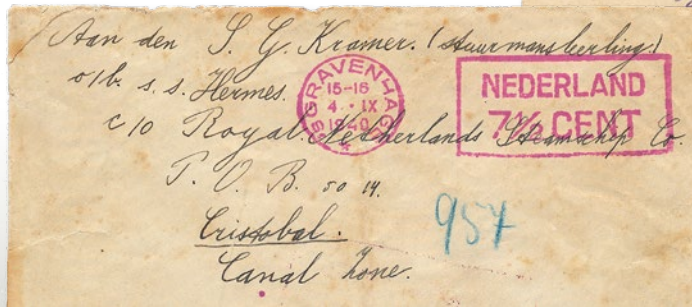 Aan den S. G. Kramer. (stuurmansleerling.)
o/b. s.s. Hermes.
c/o Royal Netherlands Steamship Co.
P. O. B. 5014.
Cristobal.
Canal Zone.
'S GRAVENHAGE
15-16
4 · IX
1940
NEDERLAND
7½ CENT
957